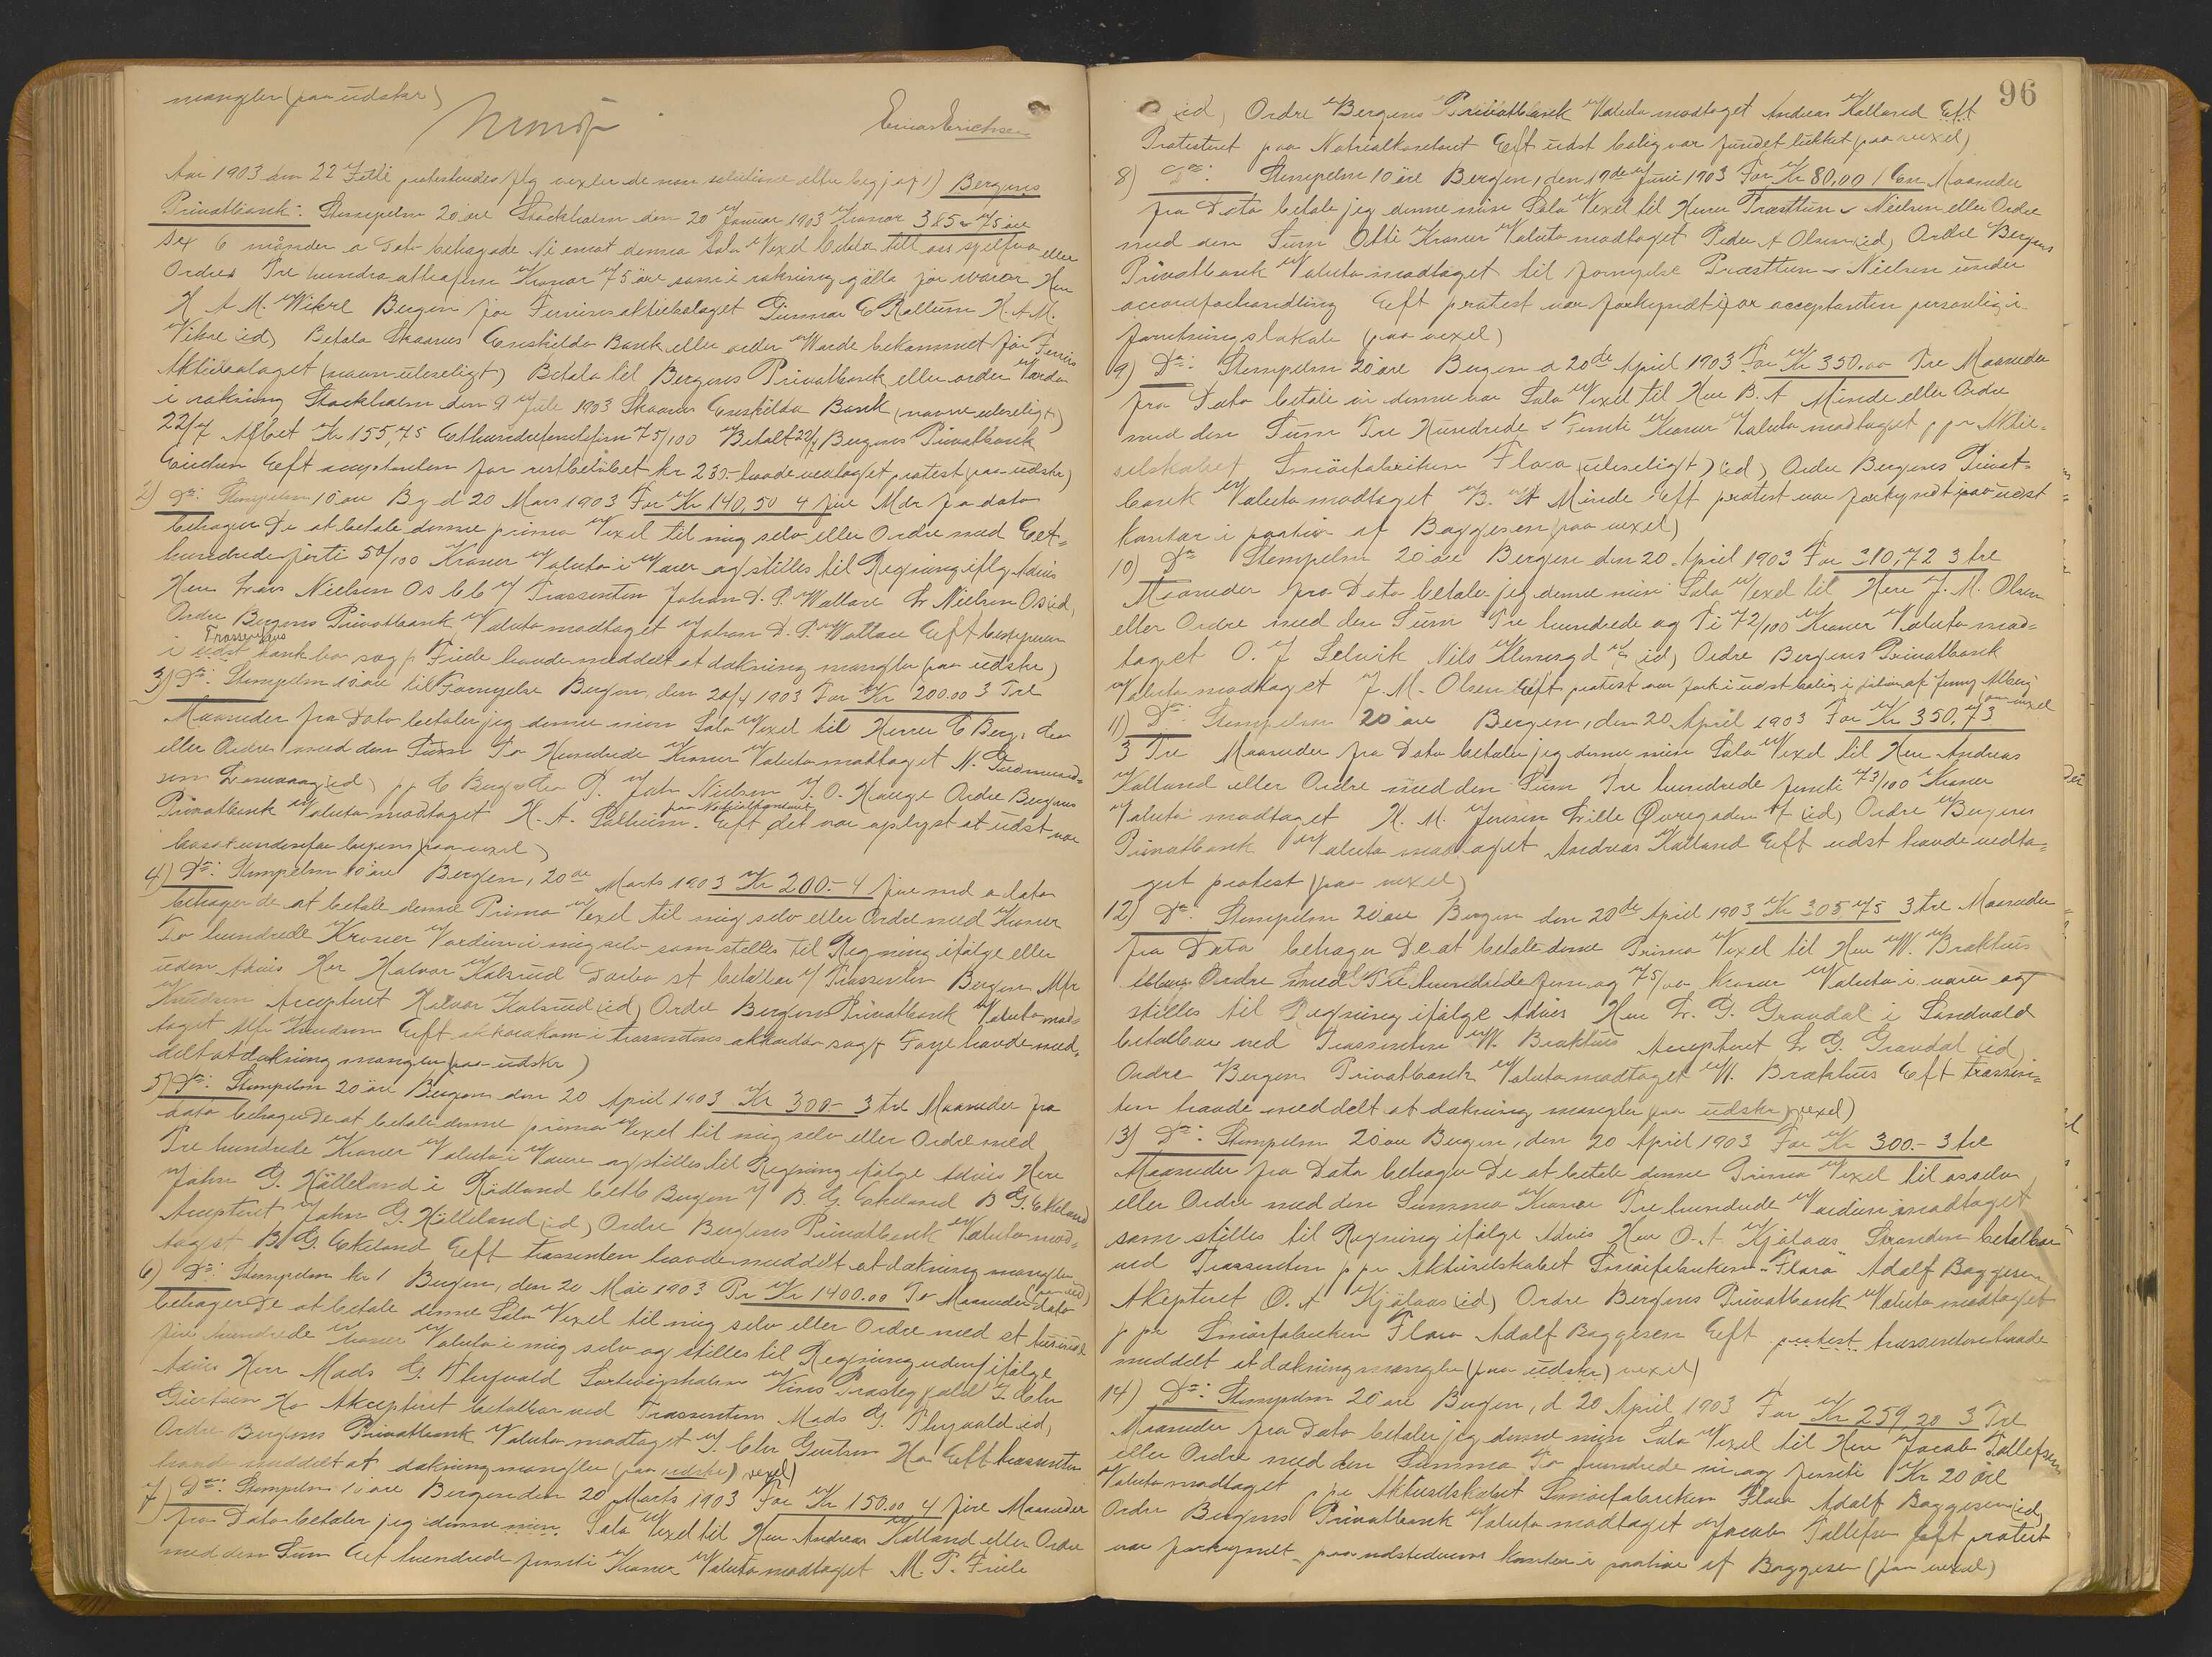 mangler (paa udskr)
Einar Erichsen
Aar 1903 den 22 Juli protesteredes flg vexler de non solutione efter begj af 1) Bergens
Privatbank: Stempelm 20 øre Stockholm den 20 Januar 1903 Kronor 385 75 øre
sex 6 månder a dato behagade Ni emot denna Sola Vexel betala till oss sjelfva eller
Ordres Tre hundra attiofem Kronor 75 öre som i räkning gälla för waror Herr
H A M. Wikre Bergen för Ferrinsaktiebolaget Gunnar E Hallum H. A M.
Vikre (id) Betala Skaanes Enskilda Bank eller order Warde bekommet för Ferrins
Aktiebolaget (navn ulæseligt) Betala til Bergens Privatbank eller order Värda
i räkning Stockholm den 9 Juli 1903 Skaanes Enskilda Bank (navne ulæseligt)
22/7 Afbet Kr 155,75 Ethundrefemtifem 75/100 Betalt 22/7 Bergens Privatbank
Eeft acceptanten for restbeløbet kr 230- havde vedtaget protest (paa udskr)
2) Do: Stempelm 10 øre Bg d 20 Mars 1903 For Kr 140,50 4 fire Mdr fra dato
behager De at betale denne prima Vexel til mig selv eller Ordre med Eet-
hundredeførti 50/100 Kroner Valuta i Varer og stilles til Regning iflg Advis
Herr Lars Nielsen Os btb / Trassenten Johan D. P. Wallace Lr Nielsen Os (id)
Ordre Bergens Privatbank Valuta modtaget Johan D. P. Wallace Eeft bestyreren
i Trassentens udst konkbo sagf Friele havde meddelt at dækning mangler (paa udskr)
3) Do: Stempelm 10 øre til Fornyelse Bergen, den 20/4 1903 For Kr 200.00 3 Tre
Maaneder fra Dato betaler jeg denne min Sola Vexel til Herrer C Berg & Co
eller Ordre med den Sum To Hundrede Kroner Valuta modtaget N. Gudmund-
sen (id) pp C Berg & Co P. John Nielsen J. O. Hauge Ordre Bergens
Privatbank Valuta modtaget H. A. Solheim. Eeft det paa Notarialkontoret var oplyst at udst var
bosat udenfor byen (paa vexel)
4) Do: Stempelm 10 øre Bergen, 20de Marts 1903 Kr 200.- 4 fire md a dato
behager de at betale denne Prima Vexel til mig selv eller Ordre med Kroner
To hundrede Kroner Værdien i mig selv som stilles til Regning ifølge eller
uden Advis Her Halvor Kalsrud st betalbar / Trassenten Bergen Mfr
Knudsen Accepteret Halvor Kalsrud (id) Ordre Bergens Privatbank Valuta mod-
taget Alfr Knudsen Eeft akkordkom i trassentens akkordbo sagf Faye havde med-
delt at dækning mangler (paa udskr)
5) Do: Stempelm 20 øre Bergen den 20 April 1903 Kr 300- 3 tre Maaneder fra
dato behager De at betale denne prima Vexel til mig selv eller Ordre med
Tre hundrede Kroner Valuta i Varer og stilles til Regning ifølge Advis Herr
John G. Hälleland i Rödland betb Bergen / B. G. Ekeland B G. Ekeland
Accepteret John G. Hälleland (id) Ordre Bergens Privatbank Valuta mod-
taget B. G. Ekeland Eeft trassenten havde meddelt at dækning mangler (paa ud)
6) Do: Stempelm kr 1 Bergen, den 20 Mai 1903 Pr Kr 1400.00 To Maaneder dato
behager De at betale denne Sola Vexel til mig selv eller Ordre med et tusinde
fire hundrede Kroner Valuta i mig selv og stilles til Regning uden / ifølge
Advis Herr Mads G. Thyvold Kins Præstegjæld J. Chr
Giertsen Accepteret betalbar ved Trassenten Mads G. Thyvold (id)
Ordre Bergens Privatbank Valuta modtaget J. Chr Giertsen Eeft trassenten
havde meddelt at dækning mangler (paa udskr) vexel)
7) Do: Stempelm 10 øre Bergen den 20 Marts 1903 For Kr 150.00 4 fire Maaneder
fra Dato betaler jeg denne min Sola Vexel til Herr Andreas Kalland eller Ordre
med den Sum Eet hundrede femti Kroner Valuta modtaget M. P. Friele
96
(id) Ordre Bergens Privatbank Valuta modtaget Andreas Kalland Eeft
Protesteret paa Notrialkontoret Eeft udst bolig var fundet lukket (paa vexel)
8) Do: Stempelm 10 øre Bergen, den 17de Juni 1903 For Kr 80,00 1 Een Maaneder
fra Dato betaler jeg denne min Sola Vexel til Herrer Præsttun & Nielsen eller Ordre
med den Sum Otti Kroner Valuta modtaget Peder A Olsen (id) Ordre Bergens
Privatbank Valuta modtaget til fornyelse Præsttun & Nielsen under
accordforhandling Eeft protest var forkyndt for acceptanten personlig i
forretningslokale (paa vexel)
9) Do: Stempelm 20 øre Bergen d 20de April 1903 For Kr 350.00 Tre Maaneder
fra Dato betale vi denne vor Sola Vexel til Herr B. A Minde eller Ordre
med den Sum Tre Hundrede & Femti Kroner Valuta modtaget ppr Aktie-
selskabet Smörfabriken Flora (ulæseligt) (id) Ordre Bergens Privat-
bank Valuta modtaget B. A Minde Eeft protest var forkyndt paa udst
kontor i paahør af Baggesen (paa vexel)
10) Do Stempelm 20 øre Bergen den 20 April 1903 For 310,72 3 tre
Maaneder fra Dato betaler jeg denne min Sola Vexel til Herr J. M. Olsen
eller Ordre med den Sum Tre hundrede og Ti 72/100 Kroner Valuta mod-
taget O. J Selvik Nils (id) Ordre Bergens Privatbank
Valuta modtaget J. M. Olsen Eeft protest var fork i udst bolig i paahør af Jenny Alberg (paa vexel
11) Do: Stempelm 20 øre Bergen, den 20 April 1903 For Kr 350,73
3 Tre Maaneder fra Dato betaler jeg denne min Sola Vexel til Herr Andreas
Kalland eller Ordre med den Sum Tre hundrede femti 73/100 Kroner
Valuta modtaget H. M. Jensen Lille Øvregaden (id) Ordre Bergens
Privatbank Valuta modtaget Andreas Kalland Eeft udst havde vedta-
get protest (paa vexel)
12) Do: Stempelm 20 øre Bergen den 20de April 1903 Kr 305 75 3 tre Maaneder
fra Dato behager De at betale denne Prima Vexel til Herr W. Brækhus
eller Ordre med Tre hundrede fem og 75/00 Kroner Valuta i varer og
stilles til Regning ifølge Advis Herr L. G. Gravdal i Sandvold
betalbar ved Trassenten W. Brækhus Accepteret L G. Gravdal (id)
Ordre Bergens Privatbank Valuta modtaget W. Brækhus Eeft trassen-
ten havde meddelt at dækning mangler (paa udskr) vexel)
13) Do: Stempelm 20 øre Bergen, den 20 April 1903 For Kr 300.- 3 tre
Maaneder fra Dato behager De at betale denne Prima Vexel til os selv
eller Ordre med den Summa Kroner Tre hundrede Værdien modtaget
som stilles til Regning ifølge Advis Herr O. A Kjölaas Stranden betalbar
ved Trassenten ppr Aktieselskabet Smörfabriken „Flora" Adolf Baggesen
Akcepteret O. A Kjölaas (id) Ordre Bergens Privatbank Valuta modtaget
ppr Smörfabriken Flora Adolf Baggesen Eeft protest trassenten havde
meddelt at dækning mangler (paa udskr) vexel)
14) Do: Stempelm 20 øre Bergen, d 20 April 1903 For Kr 259 20 3 Tre
Maaneder fra Dato betaler jeg denne min Sola Vexel til Herr Jacob Tollefsen
eller Ordre med den Summa To hundrede ni og femti Kr 20 øre
Valuta modtaget ppr Aktieselskabet Smörfabriken Flora Adolf Baggesen (id)
Ordre Bergens Privatbank Valuta modtaget Jacob Tollefsen Eeft protest
var forkyndt paa udstederens kontor i paahør af Baggesen (paa vexel)